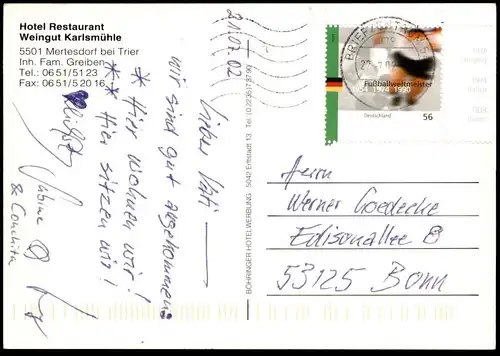 Hotel Restaurant
Weingut Karlsmühle
5501 Mertesdorf bei Trier
Inh. Fam. Greiben
Tel.: 06 51/51 23
Fax: 06 51/5 20 16
21.07.02
Lieber Vati
wir sind gut angekommen
* Hier wohnen wir!
** Hier sitzen wir!
Sabine
& Conchita
BÖHRINGER HOTELWERBUNG 5042 Erftstadt 13 Tel.
BRIEFZENTRUM
Fußballweltmeister
1954 1974 1990
Deutschland
56
Herrn
Werner Goedecke
Edisonallee 8
53125 Bonn